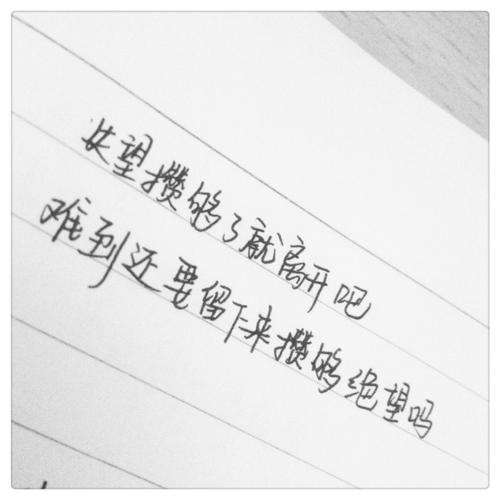 失望攒够了就离开吧
难到还要留下来攒够绝望吗